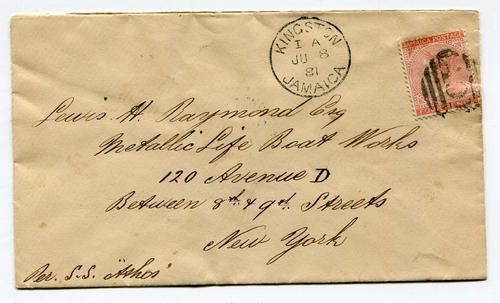 KINGSTON
I A
JU 8
81
JAMAICA
JAMAICA POSTAGE
Lewis. H. Raymond Esq
Metallic Life Boat Works
120 Avenue D
Between 8th & 9th Streets
New York
Per. S.S. "Athos"